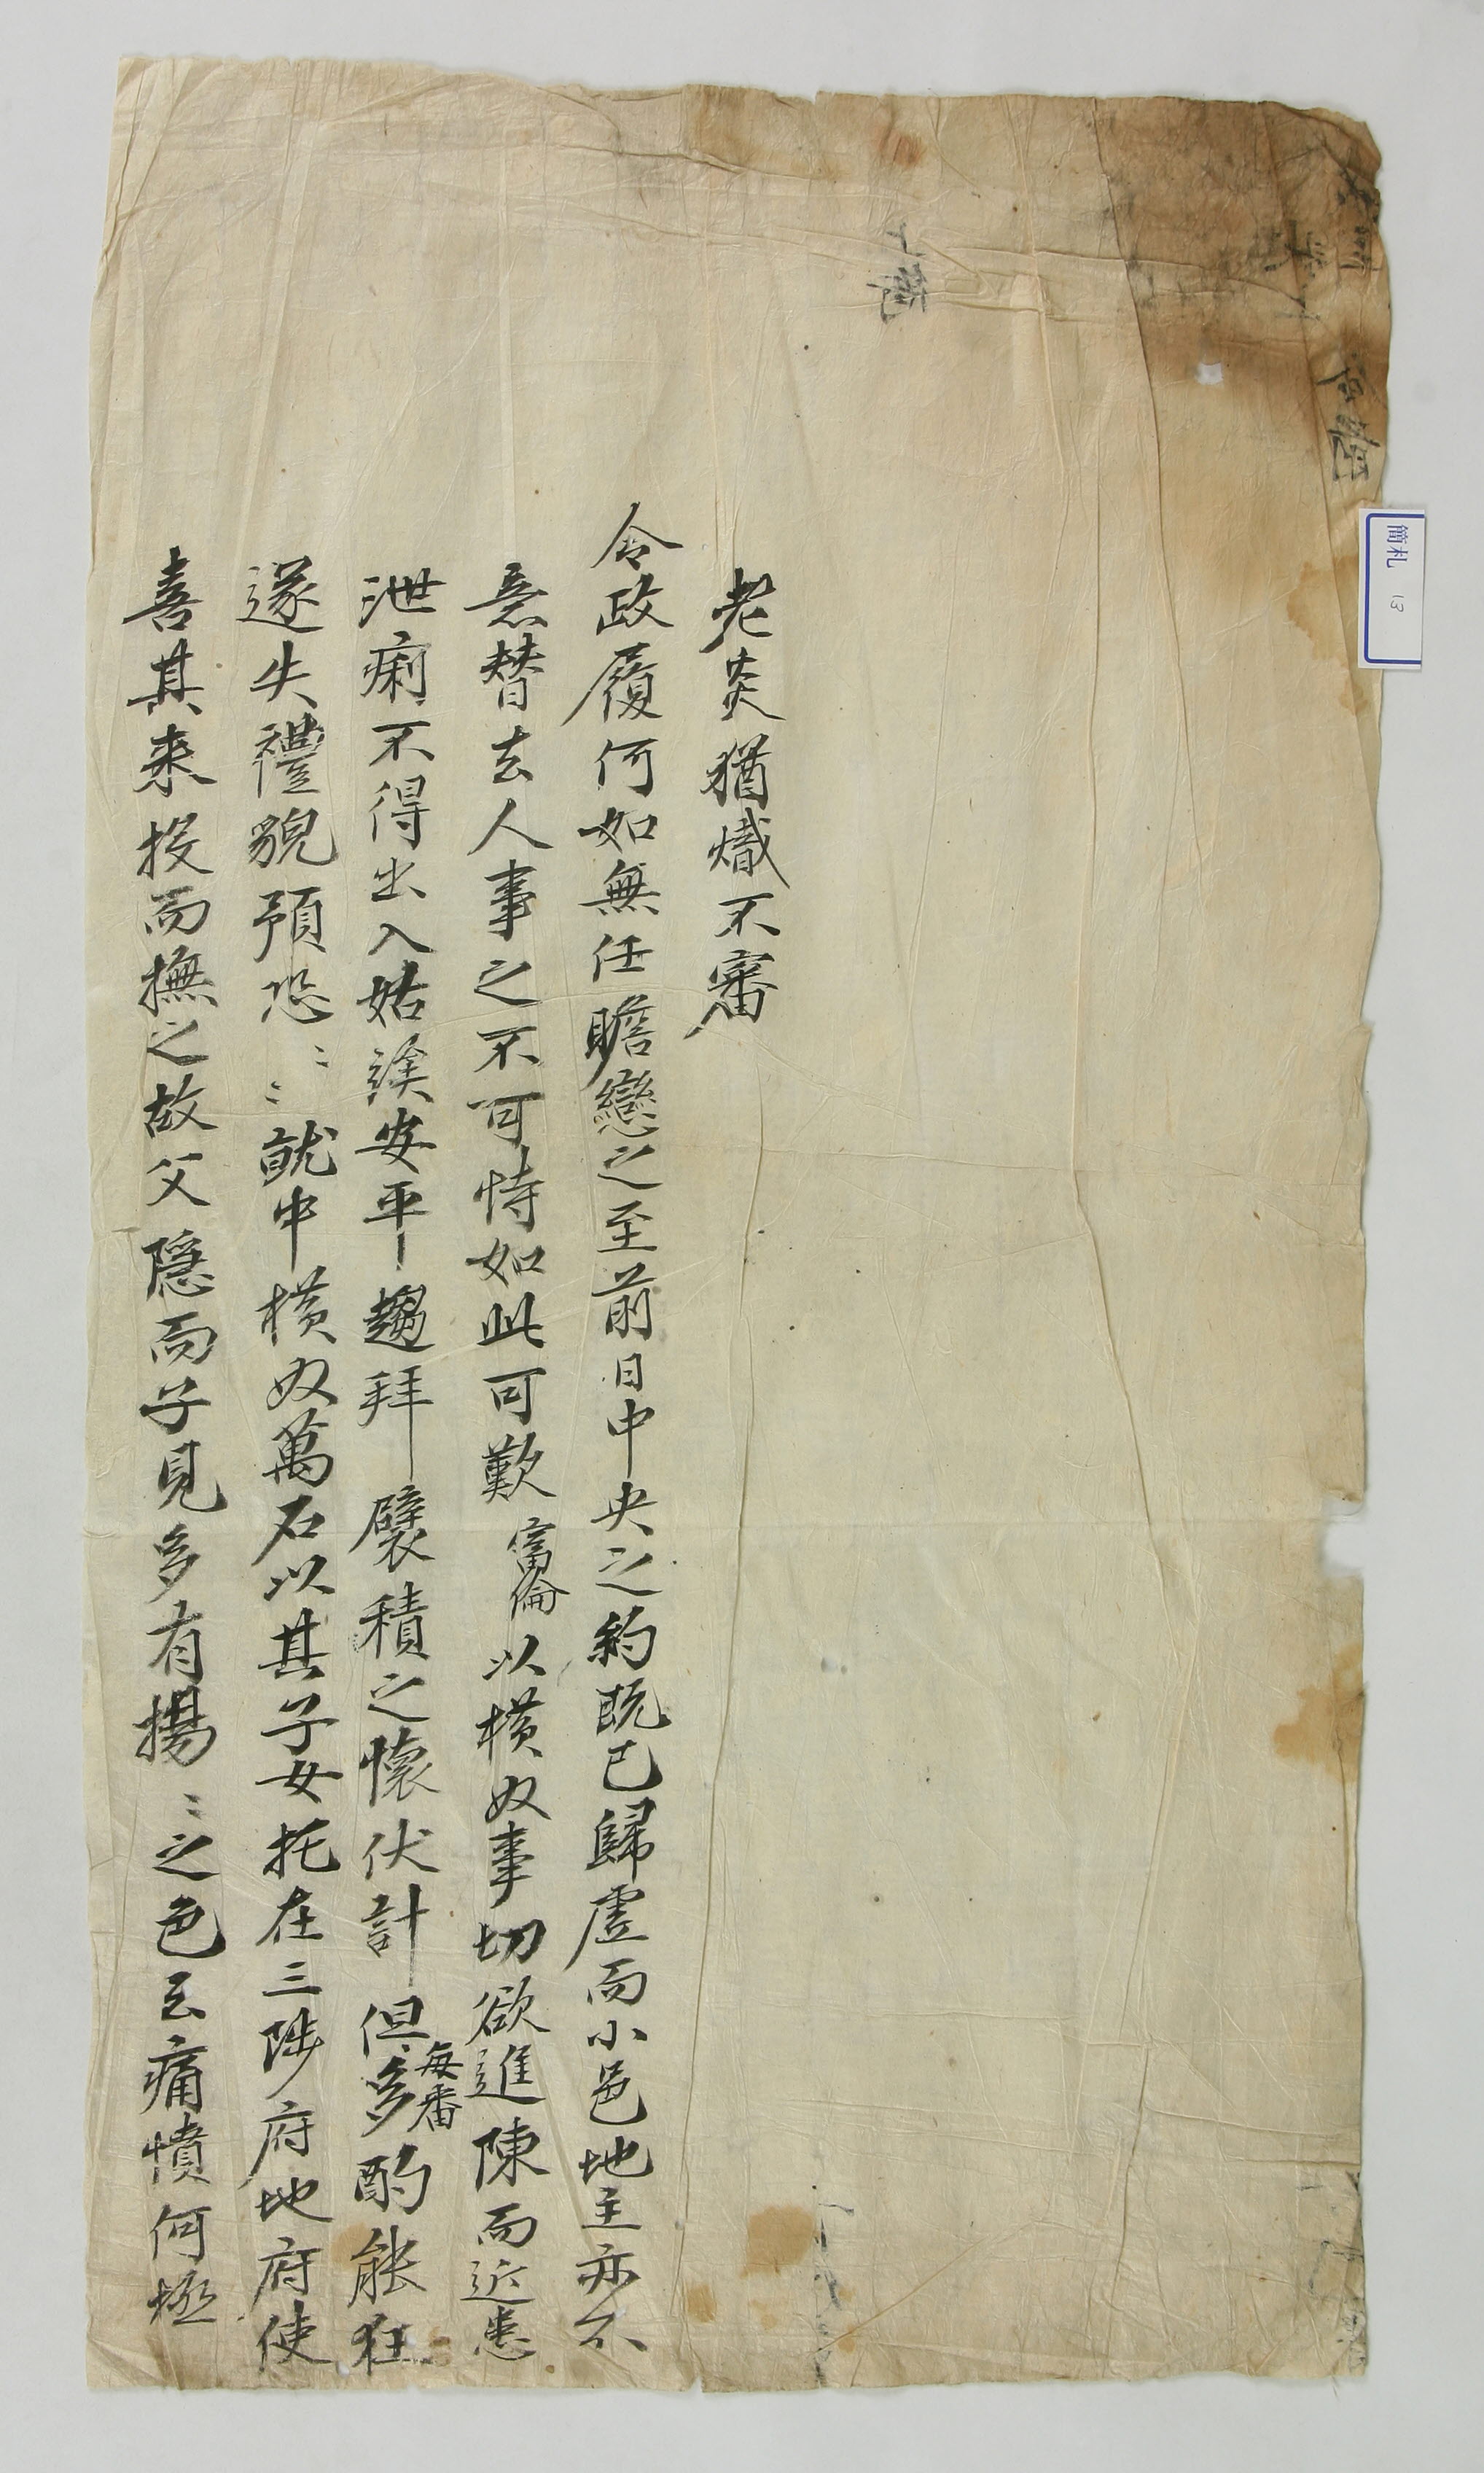 簡札 13
老炎猶熾不審
令政履何如無任瞻戀之至前日中央之約既已歸虛而小邑地主亦不
意替去人事之不可恃如此可歎窩倫以橫奴事切欲進陳而近患
泄痢不得出入姑俟安平趨拜襞積之懷伏計但每番多酌能狂
遂失禮貌預恐〻〻就中橫奴萬石以其子女托在三陟府地府使
喜其來投而撫之故父隱而子見多有揚〻之色云痛憤何極